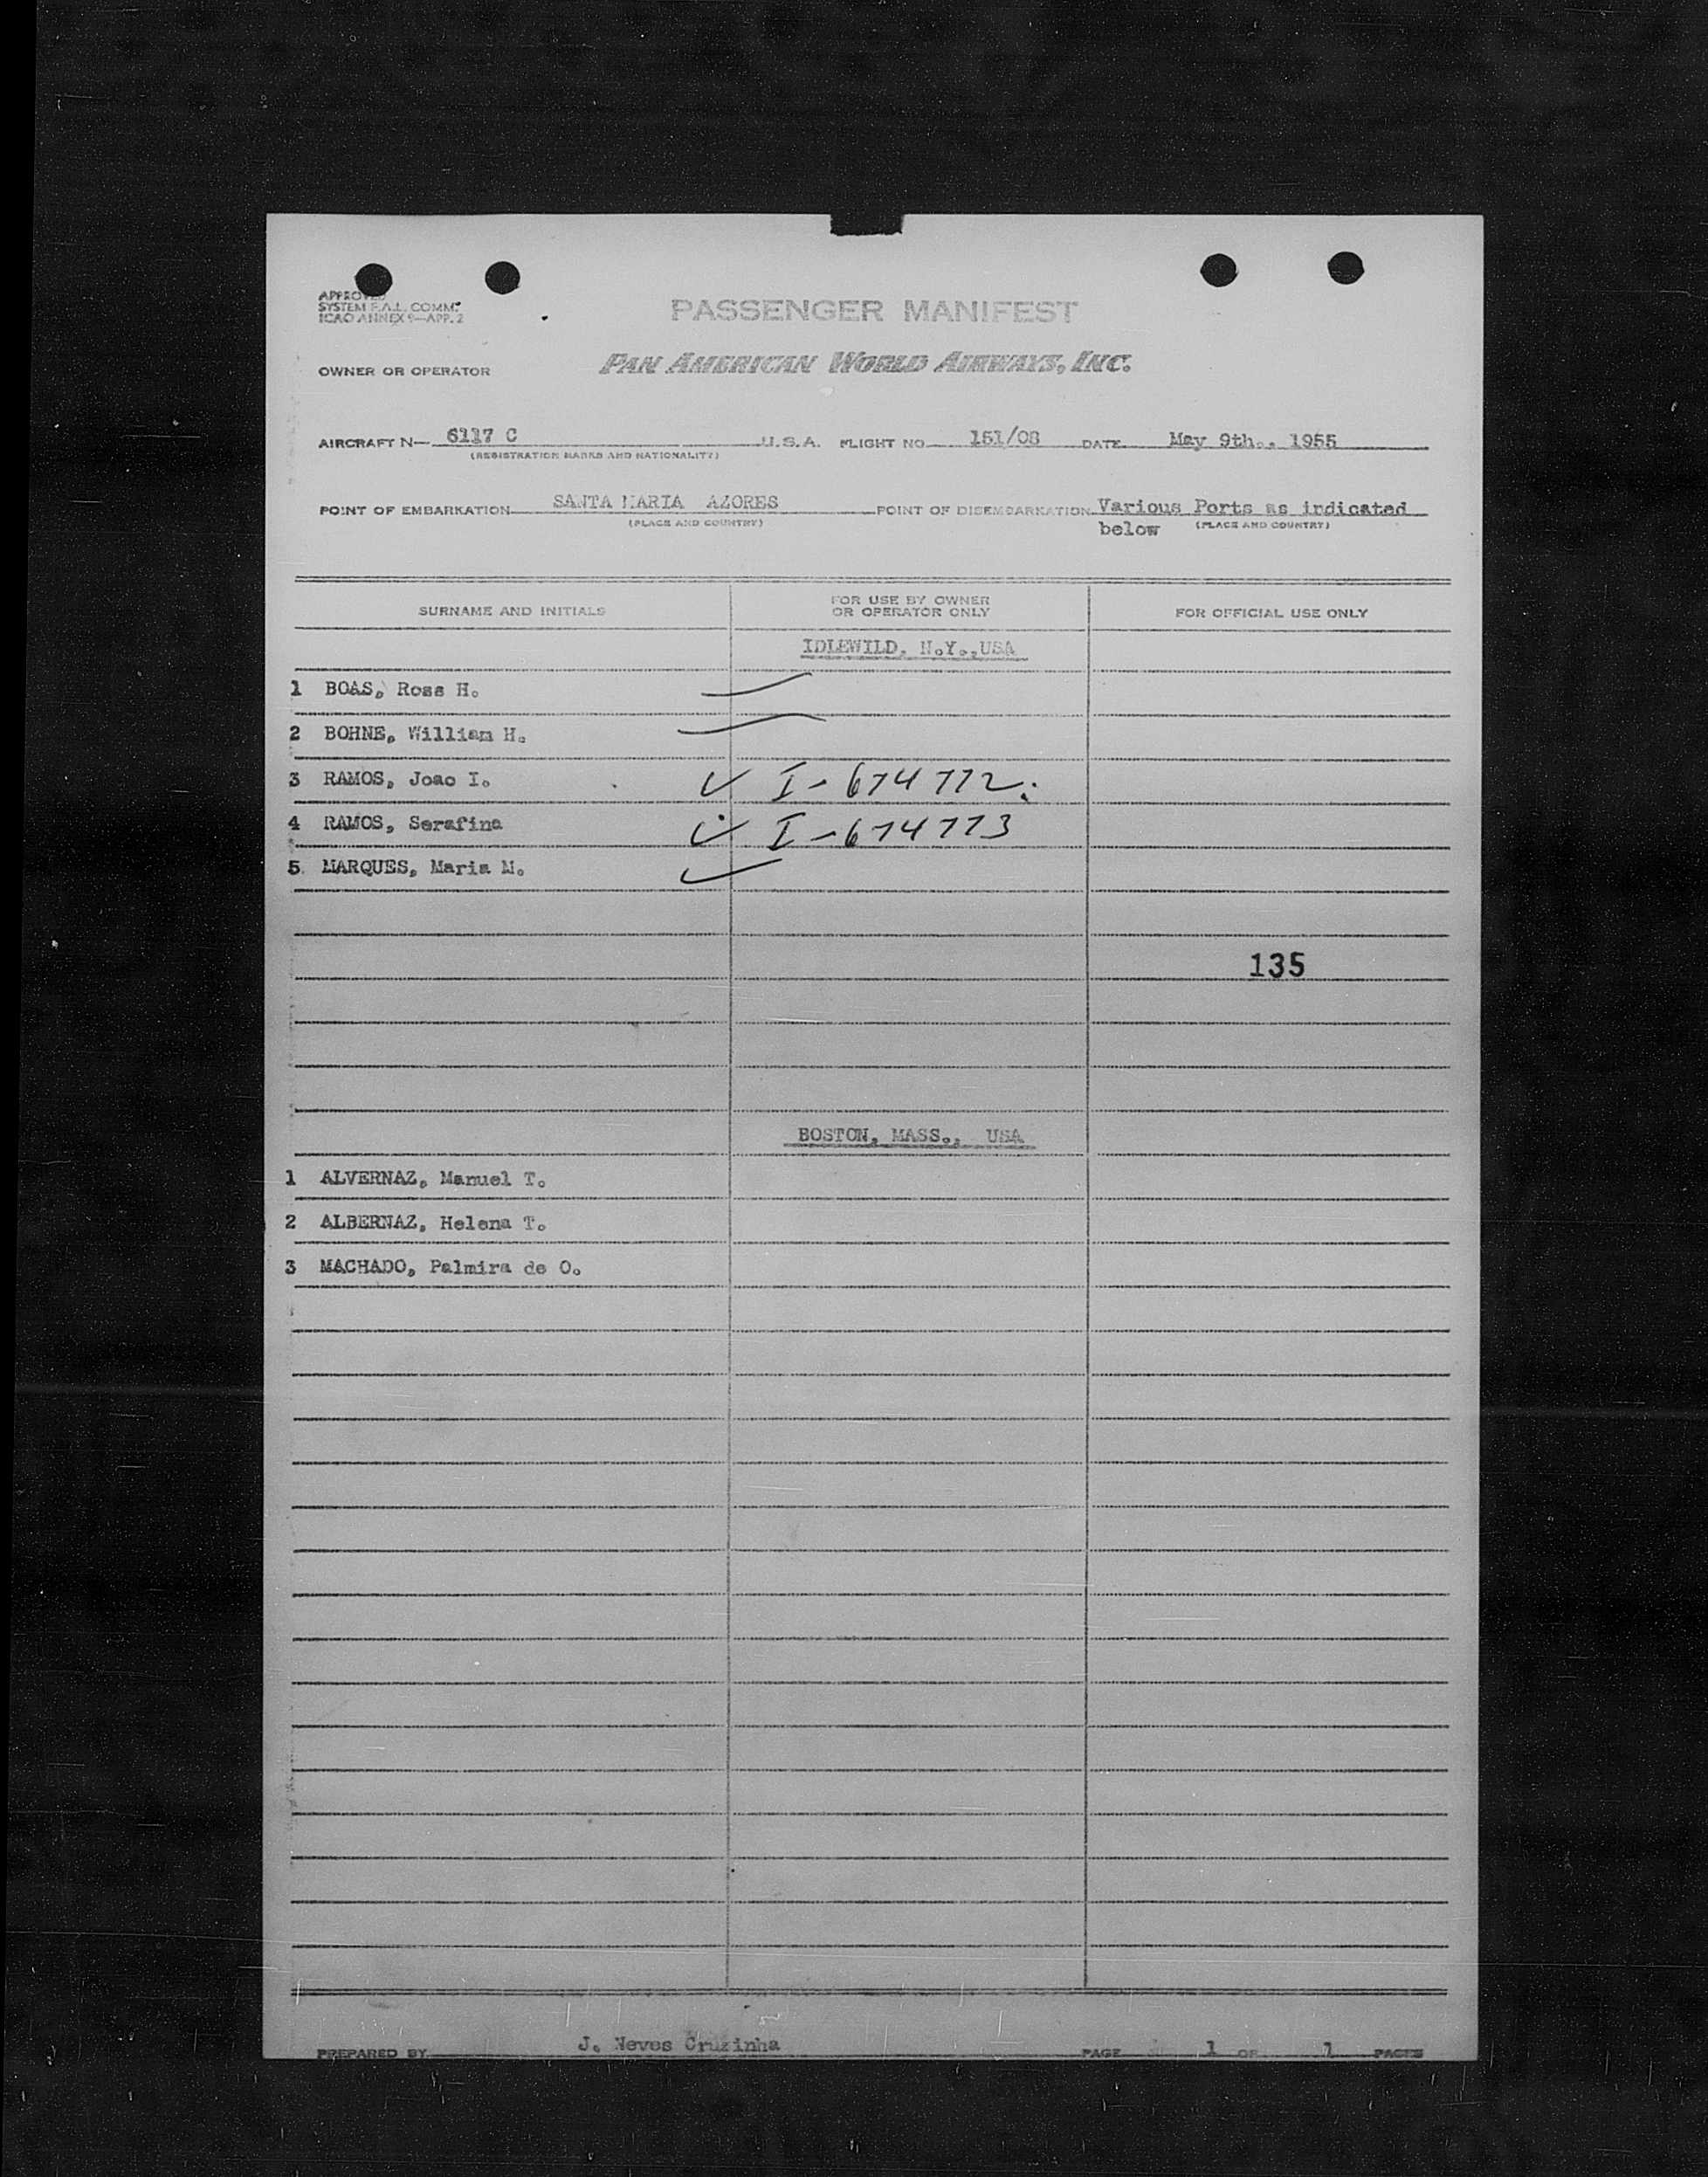 APPROVED
SYSTEM F.A.L. COMM.
ICAO ANNEX 9—APP. 2
PASSENGER MANIFEST
OWNER OR OPERATOR PAN AMERICAN WORLD AIRWAYS, INC.
AIRCRAFT N— 6117 C U.S.A. FLIGHT NO 151/08 DATE May 9th., 1955
(REGISTRATION MARKS AND NATIONALITY)
POINT OF EMBARKATION SANTA MARIA AZORES POINT OF DISEMBARKATION Various Ports as indicated
(PLACE AND COUNTRY) below (PLACE AND COUNTRY)
SURNAME AND INITIALS FOR USE BY OWNER OR OPERATOR ONLY FOR OFFICIAL USE ONLY
IDLEWILD, N.Y.,USA
1 BOAS, Ross H.
2 BOHNE, William H.
3 RAMOS, Joao I. ✓ I-674772
4 RAMOS, Serafina ✓ I-674773
5 MARQUES, Maria M. ✓
135
BOSTON, MASS., USA
1 ALVERNAZ, Manuel T.
2 ALBERNAZ, Helena T.
3 MACHADO, Palmira de O.
PREPARED BY J. Neves Cruzinha PAGE 1 OF 1 PAGES